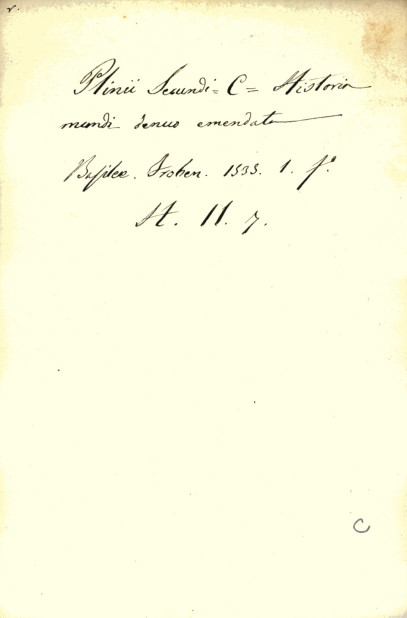 r.
Plinii Secundi = C = Historia
mundi denuo emendata
Basilee. Froben. 1535. 1. fº.
H. 11. 7.
C